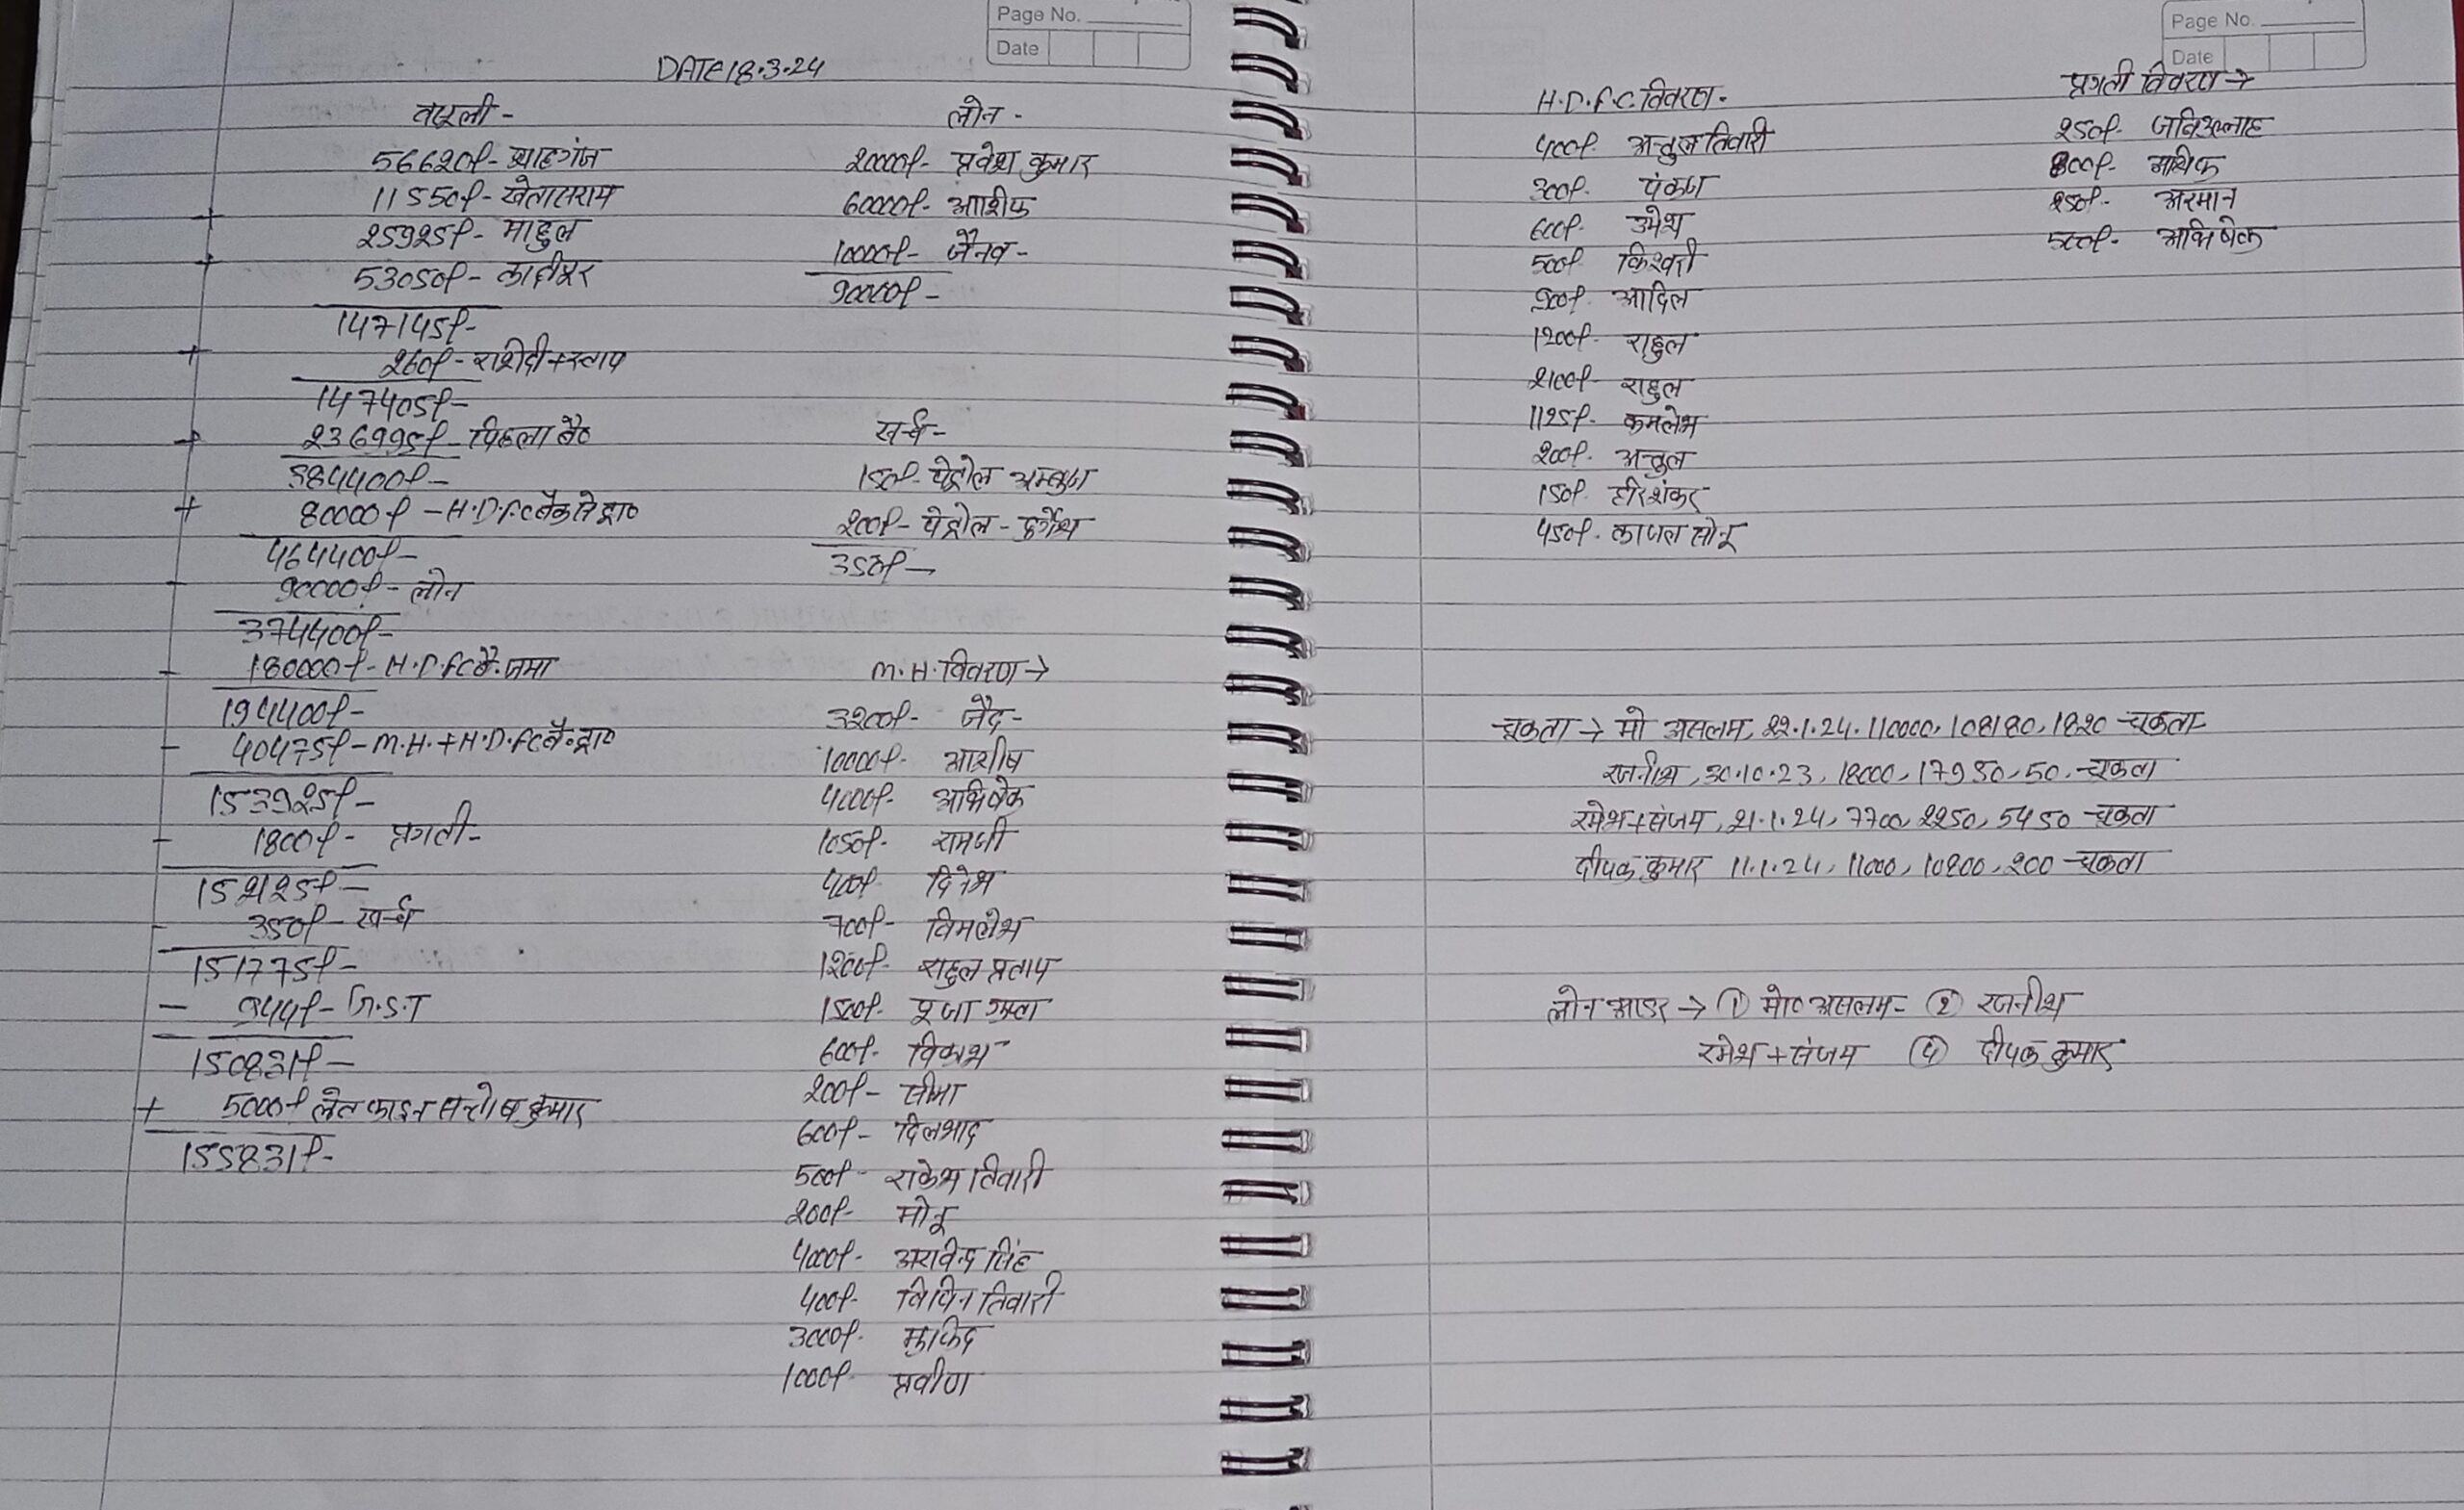 Page No.
Date
DATE 18.3.24
वसूली -
56620/- शाहगंज
11550/- खेतासराय
+ 25925/- माहुल
+ 53050/- कादीपुर
147145/-
+ 260/- राशेदी+स्टाप
147405/-
+ 236995/- पिछला बैं०
384400/-
+ 80000/- H.D.F.C बैंक से प्राप्त
464400/-
- 90000/- लोन
374400/-
- 180000/- H.D.F.C बैं. जमा
194400/-
- 40475/- M.H.+H.D.F.C बैं०
153925/-
- 1800/- प्रगती -
152125/-
- 350/- खर्च
151775/-
- 944/- G.S.T
150831/-
+ 5000/- लेट फाइन सन्तोष कुमार
155831/-
लोन -
20000/- प्रवेश कुमार
60000/- आशीफ
10000/- जैनव -
90000/-
खर्च -
150/- पेट्रोल
200/- पेट्रोल - दुर्गेश
350/-
M.H. विवरण →
3200/- जैद -
10000/- आशीष
4000/- अभिषेक
1050/- रामजी
400/- दिनेश
700/- विमलेश
1200/- राहुल प्रताप
1500/- पूजा गुप्ता
600/- विकाश
200/- सीमा
600/- दिलशाद
500/- राकेश तिवारी
200/- मोनू
4000/- अरविन्द सिंह
400/- विपिन तिवारी
3000/-
1000/- प्रवीण
Page No.
Date
H.D.F.C. विवरण -
400/- अतुल तिवारी
300/- पंकज
600/- उमेश
500/- किश्वरी
900/- आदिल
1200/- राहुल
2100/- राहुल
1125/- कमलेश
200/- अतुल
150/- हरिशंकर
450/- काजल सोनू
प्रगती विवरण →
250/-
800/- आशिक
250/- अरमान
500/- अभिषेक
चूकता → मो असलम, 22.1.24. 110000, 108180, 1820 चूकता
रजनीश, 30.10.23, 18000, 17950, 50. चूकता
रमेश+संजय, 21.1.24, 7700, 2250, 5450 चूकता
दीपक कुमार 11.1.24, 11000, 10800, 200 चूकता
लोन आडर → ① मो० असलम - ② रजनीश
रमेश+संजय ④ दीपक कुमार